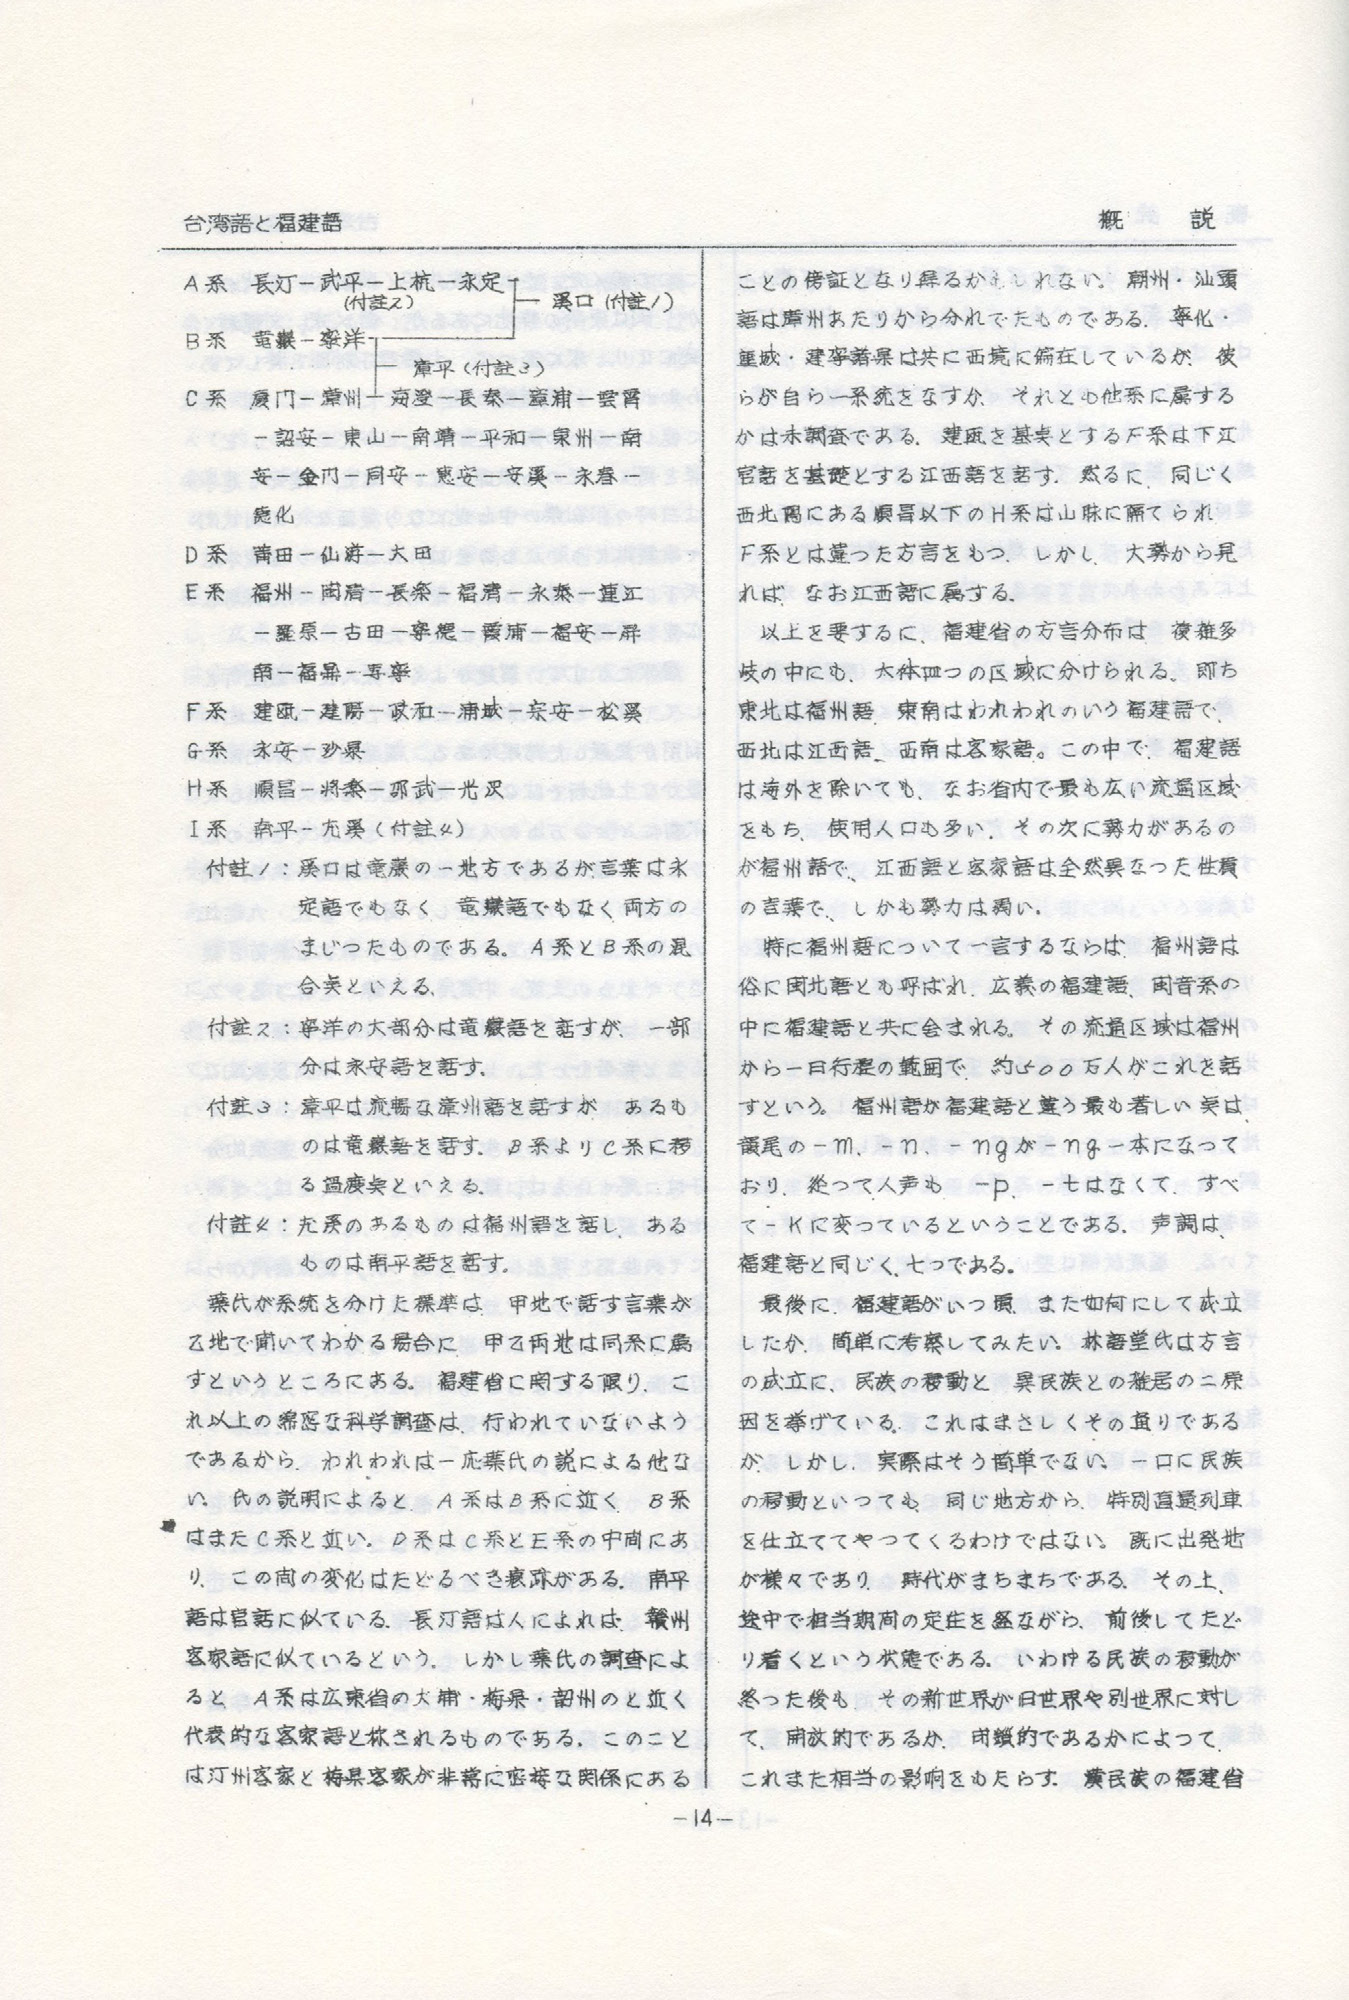 台湾語と福建語
概　説
A系　長汀－武平－上杭－永定
(付註2)
渓口(付註1)
B系　竜巖－寧洋
漳平(付註3)
C系　廈門－漳州－海澄－長泰－漳浦－雲霄
－詔安－東山－南靖－平和－泉州－南
安－金門－同安－恵安－安溪－永春－
徳化
D系　莆田－仙游－大田
E系　福州－閩清－長楽－福清－永泰－連江
－羅原－古田－寧徳－霞浦－福安－屏
南－福鼎－寿寧
F系　建甌－建陽－政和－浦城－崇安－松溪
G系　永安－沙県
H系　順昌－将楽－邵武－光沢
I系　南平－尤溪(付註4)
付註1：溪口は竜巖の一地方であるが言葉は永
定語でもなく、竜巖語でもなく両方の
まじつたものである。A系とB系の混
合点といえる。
付註2：寧洋の大部分は竜巖語を話すが、一部
分は永安語を話す。
付註3：漳平は流暢な漳州語を話すが、あるも
のは竜巖語を話す。B系よりC系に移
る過度点といえる。
付註4：尤溪のあるものは福州語を話し、ある
ものは南平語を話す。
葉氏が系統を分けた標準は、甲地で話す言葉が
乙地で聞いてわかる場合に、甲乙両地は同系に属
すというところにある。福建省に関する限り、こ
れ以上の綿密な科学調査は、行われていないよう
であるから、われわれは一応葉氏の説による他な
い。氏の説明によると、A系はB系に近く、B系
はまたC系と近い。D系はC系とE系の中間にあ
り、この間の変化はたどるべき痕跡がある。南平
語は官話に似ている。長汀語は人によれば、贛州
客家語に似ているという。しかし葉氏の調査によ
ると、A系は広東省の大埔・梅県・韶州のと近く
代表的な客家語と称されるものである。このこと
は汀州客家と梅県客家が非常に密接な関係にある
ことの傍証となり得るかもしれない。潮州・汕頭
語は漳州あたりから分れでたものである。寧化・
連城・建寧諸県は共に西境に偏在しているが、彼
らが自ら一系統をなすか、それとも他系に属する
かは未調査である。建甌を基点とするF系は下江
官話を基礎とする江西語を話す。然るに、同じく
西北隅にある順昌以下のH系は山脉に隔てられ、
F系とは違つた方言をもつ。しかし、大勢から見
れば、なお江西語に属する。
以上を要するに、福建省の方言分布は、複雑多
岐の中にも、大体四つの区域に分けられる。即ち
東北は福州語、東南はわれわれのいう福建語で、
西北は江西語、西南は客家語。この中で、福建語
は海外を除いても、なお省内で最も広い流通区域
をもち、使用人口も多い。その次に勢力があるの
が福州語で、江西語と客家語は全然異なった性質
の言葉で、しかも勢力は弱い。
特に福州語について一言するならば、福州語は
俗に閩北語とも呼ばれ、広義の福建語、閩音系の
中に福建語と共に含まれる。その流通区域は福州
から一日行程の範囲で、約500万人がこれを話
すという。福州語が福建語と違う最も著しい点は
韻尾の－m、－n、－ngが－ng一本になって
おり、従つて入声も、－p、－tはなくて、すべ
て－Kに変つているということである。声調は、
福建語と同じく、七つである。
最後に、福建語がいつ頃、また如何にして成立
したか、簡単に考察してみたい。林語堂氏は方言
の成立に、民族の移動と、異民族との雑居の二原
因を挙げている。これはまさしくその通りである
が、しかし、実際はそう簡単でない。一口に民族
の移動といつても、同じ地方から、特別直通列車
を仕立ててやつてくるわけではない。既に出発地
が様々であり、時代がまちまちである。その上、
途中で相当期間の定住を経ながら、前後してたど
り着くという状態である。いわける民族の移動が
終った後も、その新世界が旧世界や別世界に対し
て、開放的であるか、閉鎖的であるかによって、
これまた相当の影響をもたらす。漢民族の福建省
－14－